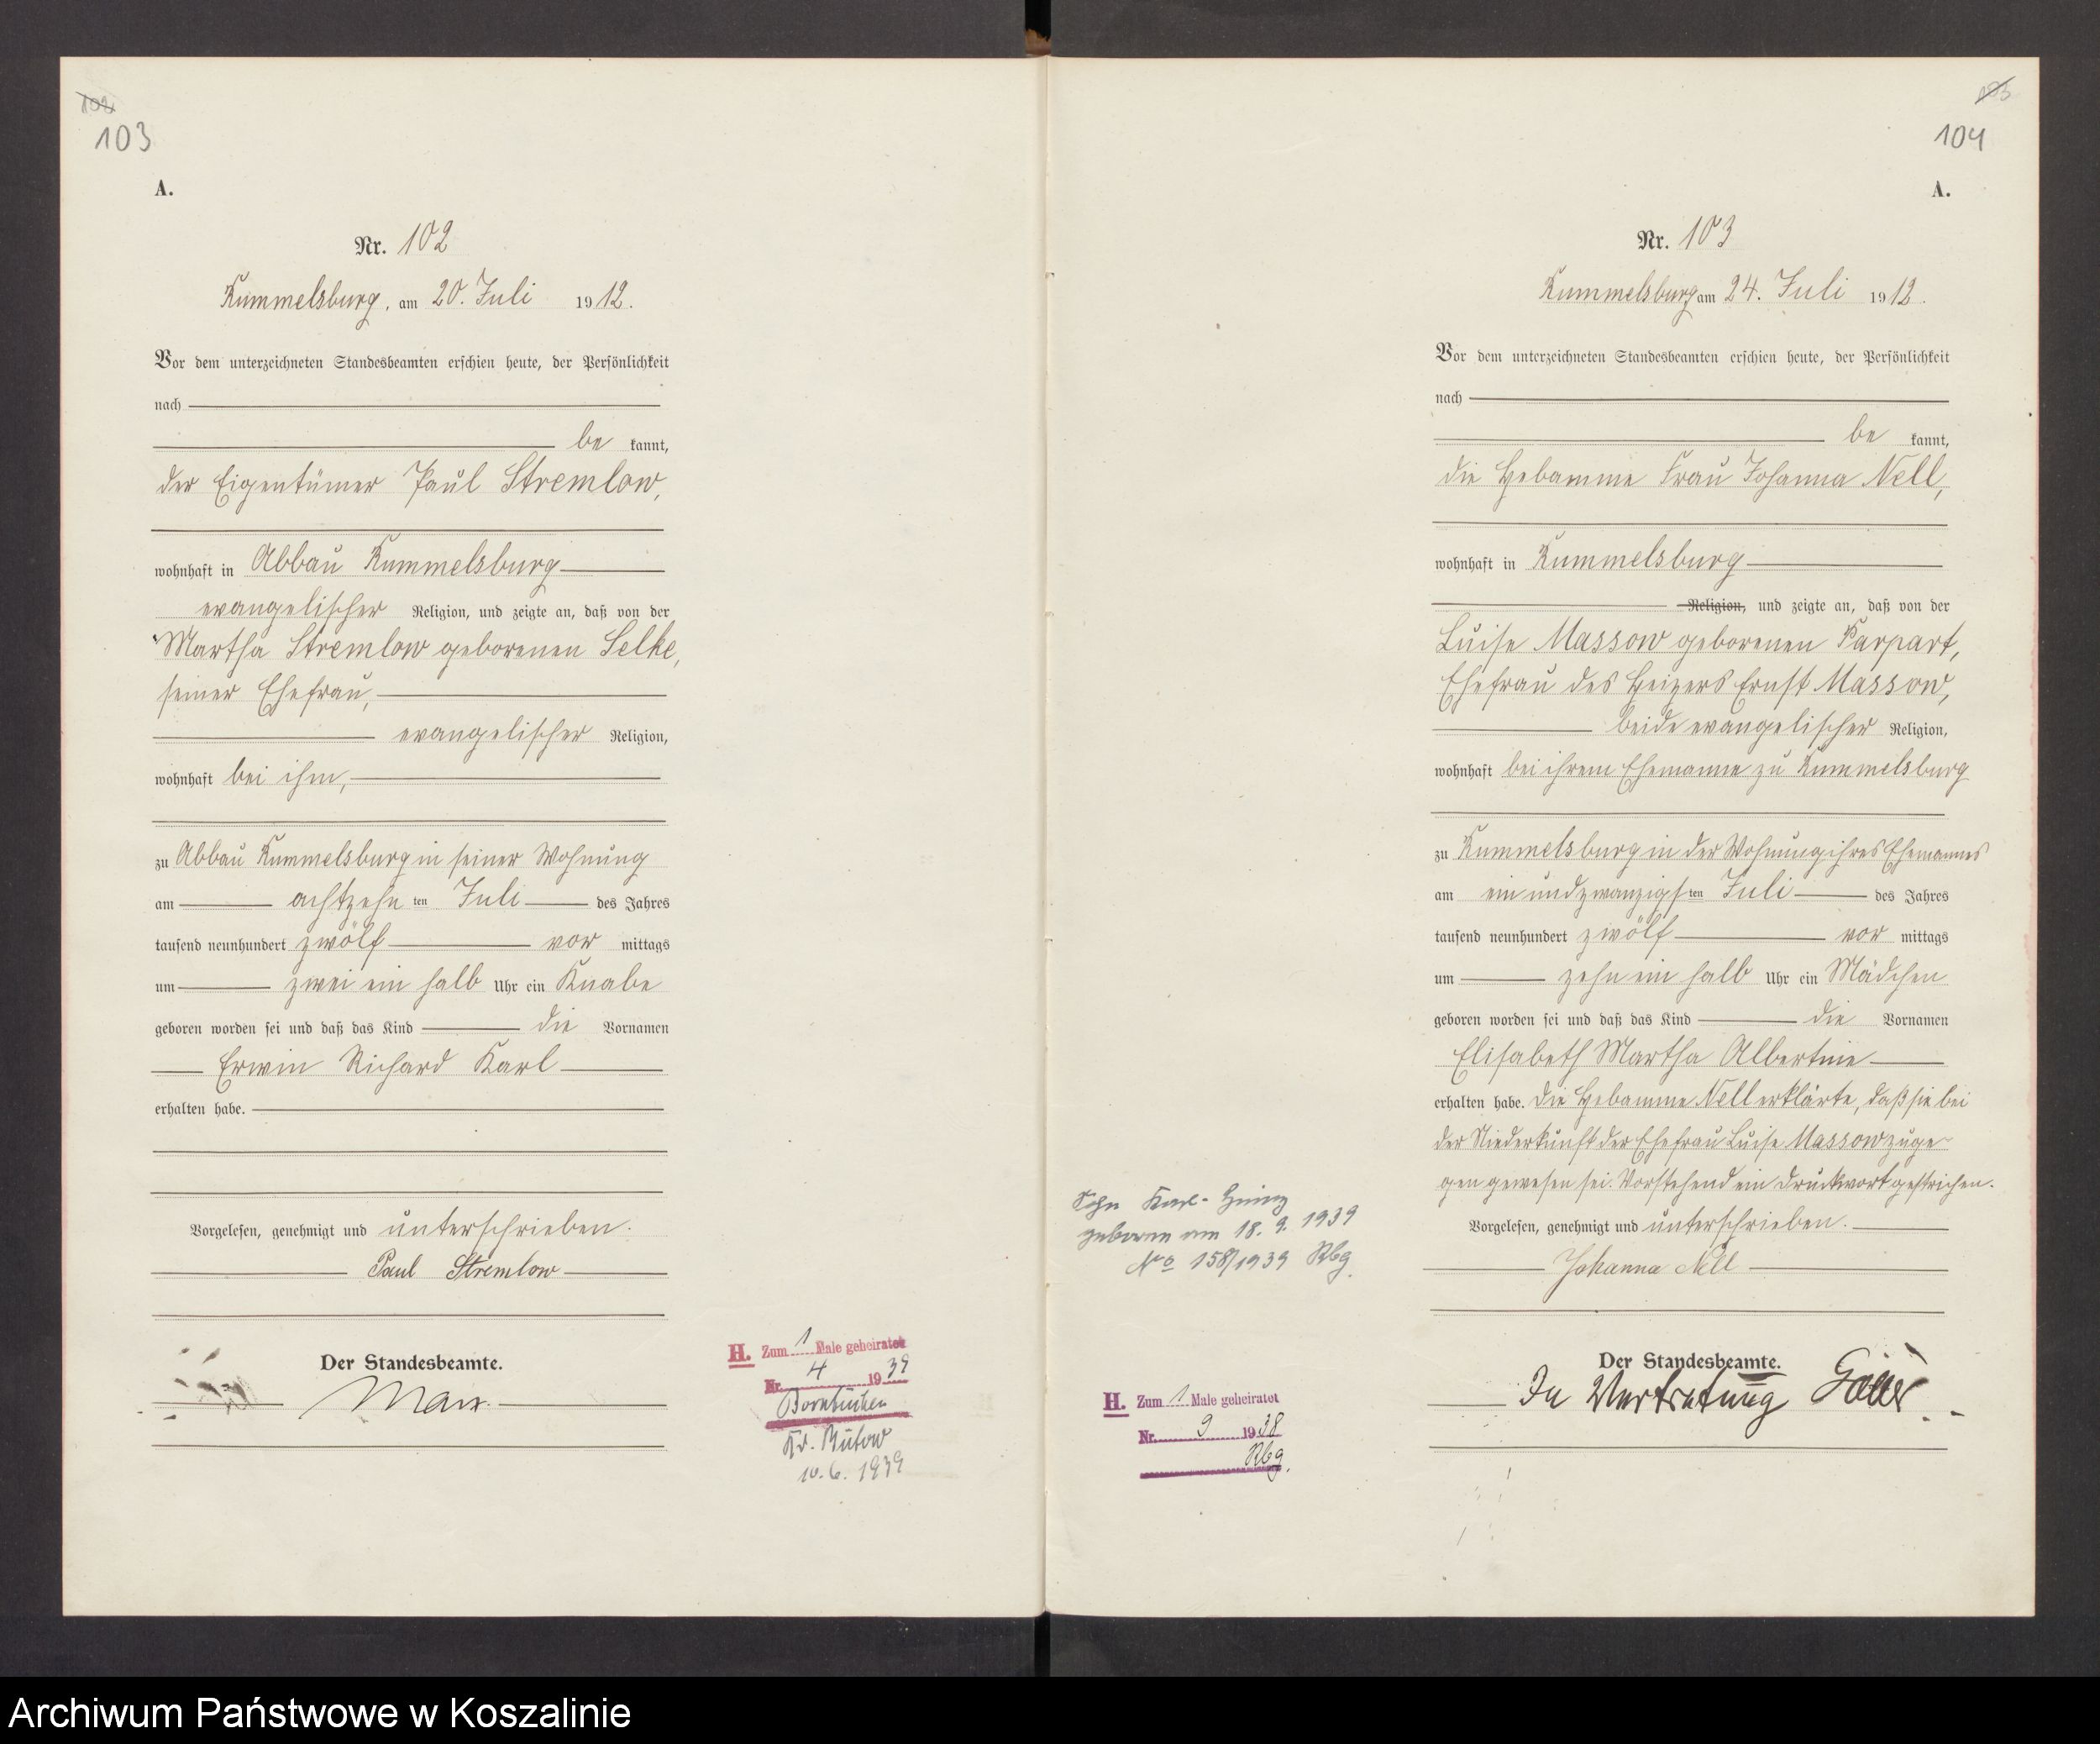 102
103
A.
Nr. 102
Rummelsburg, am 20. Juli 1912.
Vor dem unterzeichneten Standesbeamten erschien heute, der Persönlichkeit
nach
be kannt,
der Eigentümer Paul Stremlow,
wohnhaft in Abbau Rummelsburg
evangelischer Religion, und zeigte an, daß von der
Martha Stremlow geborenen Selke,
seiner Ehefrau,
evangelischer Religion,
wohnhaft bei ihm,
zu Abbau Rummelsburg in seiner Wohnung
am achtzehn ten Juli des Jahres
tausend neunhundert zwölf vor mittags
um zwei ein halb Uhr ein Knabe
geboren worden sei und daß das Kind die Vornamen
Erwin Richard Karl
erhalten habe.
Vorgelesen, genehmigt und unterschrieben.
Paul Stremlow
Der Standesbeamte.
H. Zum 1 Male geheiratet
Nr. 4 1939
Borntuchen
Kr. Bütow
10. 6. 1939
103
104
A.
Nr. 103
Rummelsburg am 24. Juli 1912.
Vor dem unterzeichneten Standesbeamten erschien heute, der Persönlichkeit
nach
be kannt,
die Hebamme Frau Johanna Nell,
wohnhaft in Rummelsburg
Religion, und zeigte an, daß von der
Luise Massow geborenen Parpart,
Ehefrau des Heizers Ernst Massow,
beide evangelischer Religion,
wohnhaft bei ihrem Ehemanne zu Rummelsburg
zu Rummelsburg in der Wohnung ihres Ehemannes
am ein und zwanzigsten Juli des Jahres
tausend neunhundert zwölf vor mittags
um zehn ein halb Uhr ein Mädchen
geboren worden sei und daß das Kind die Vornamen
Elisabeth Martha Albertine
erhalten habe. Die Hebamme Nell erklärte, daß sie bei
der Niederkunft der Ehefrau Luise Massow zuge-
gen gewesen sei. Vorstehend ein Druckwort gestrichen.
Vorgelesen, genehmigt und unterschrieben.
Johanna Nell
Der Standesbeamte.
In Vertretung
Sohn Karl-Heinz
geboren am 18. 9. 1939
No 158/1939 Rbg.
H. Zum 1 Male geheiratet
Nr. 9 1938
Rbg.
Archiwum Państwowe w Koszalinie